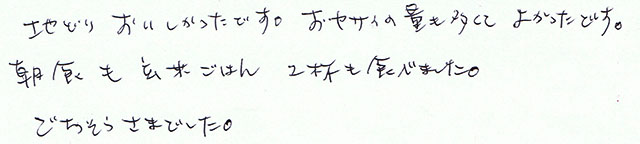 地どり おいしかったです。 おヤサイの量も多くて よかったです。
朝食も 玄米ごはん 2杯も食べました。
ごちそうさまでした。